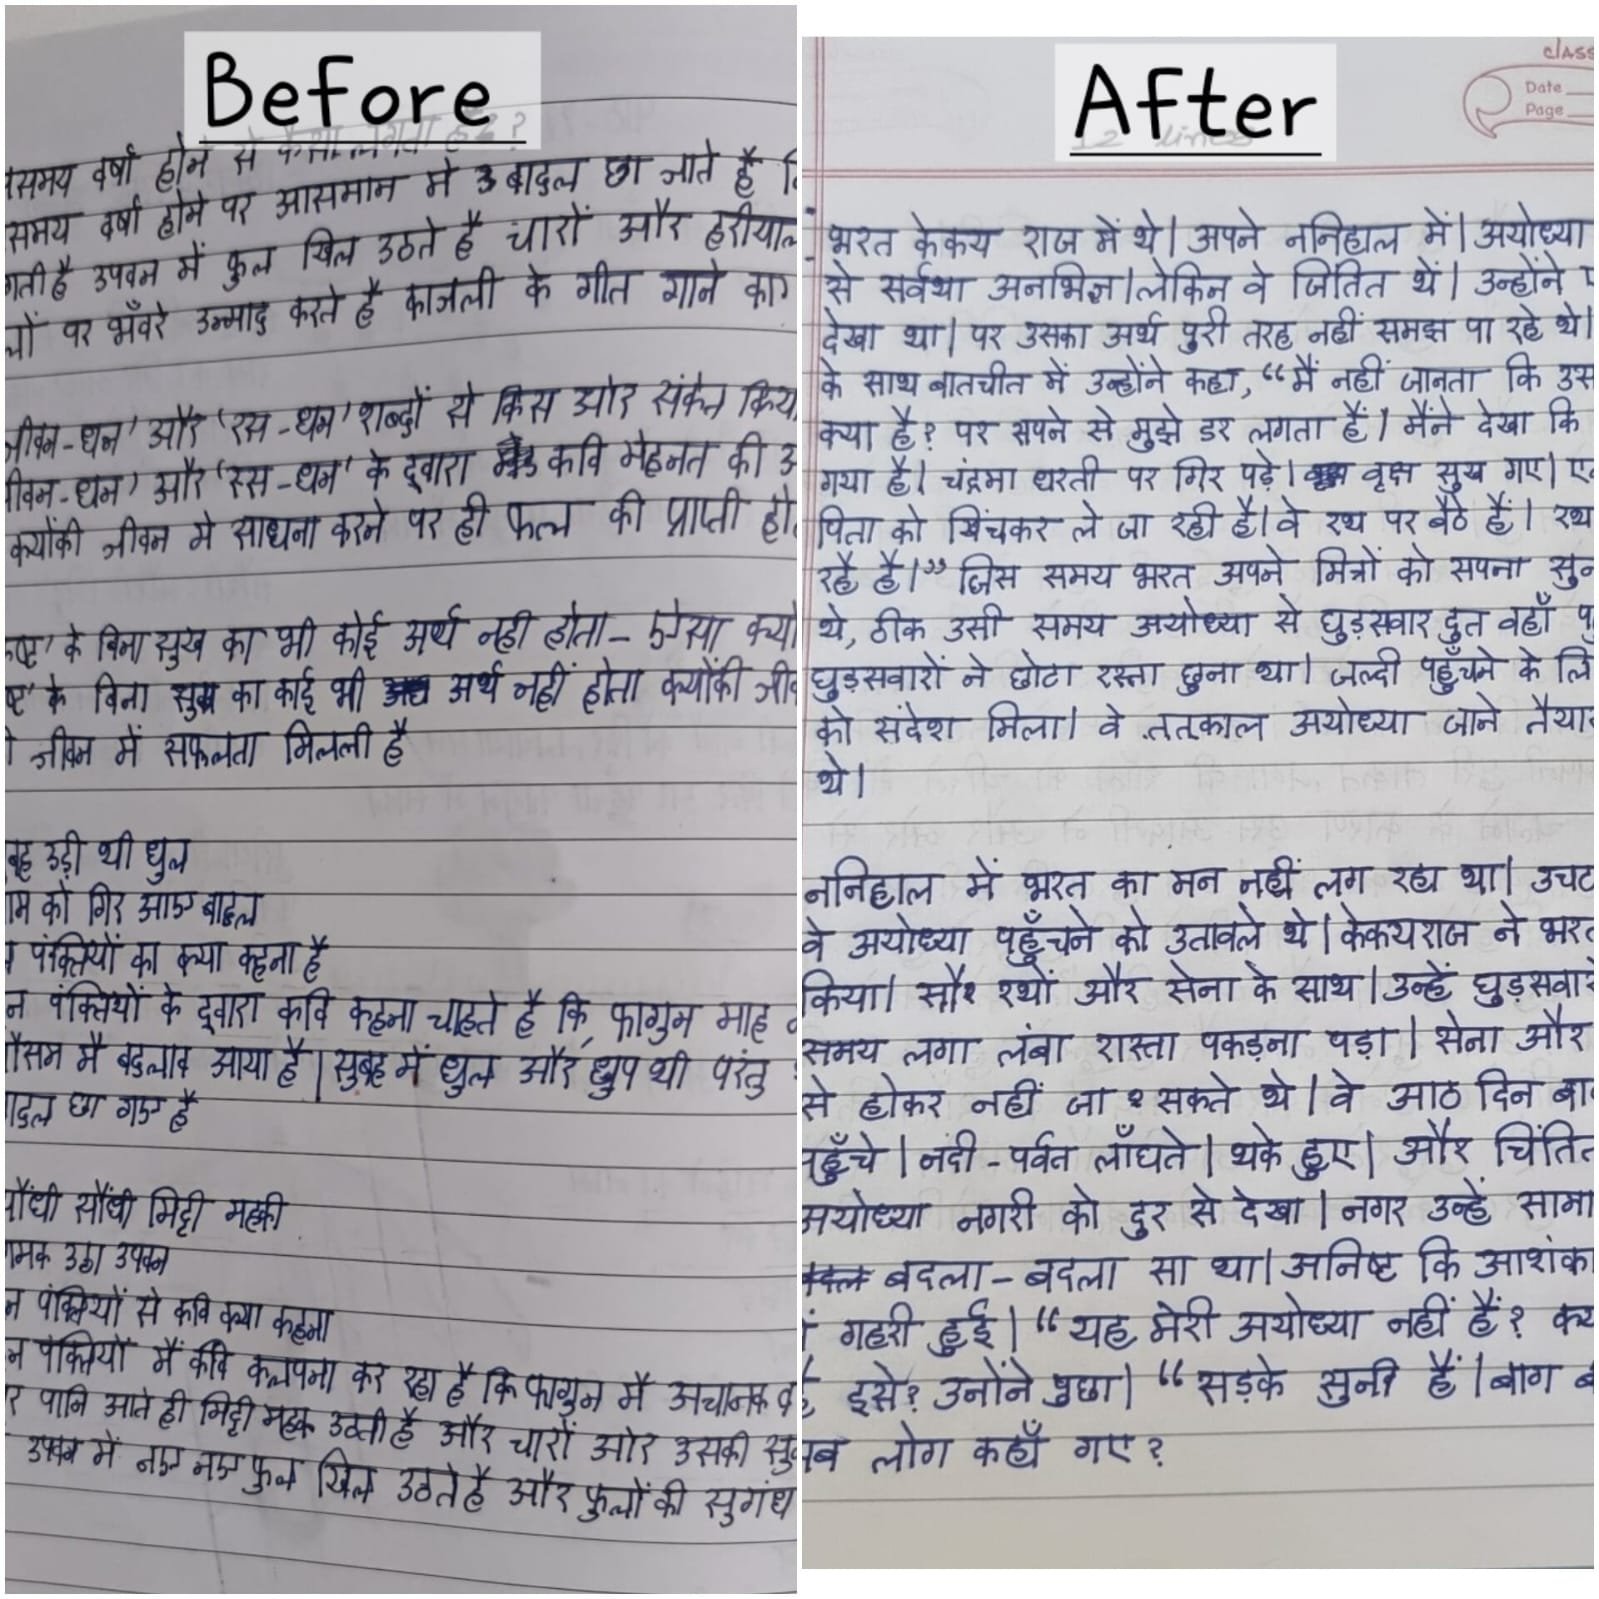 Before
समय वर्षा होने से कैसा लगता है?
समय वर्षा होने पर आसमान मे बादल छा जाते है
गती है उपवन में फुल खिल उठते है चारों और हरीयाल
पर भँवरे उन्माद करते है काजली के गीत गाने का
जीवन-धन' और 'रस-धन' शब्दों से किस ओर संकेत किय
ीवन-धन' और 'रस-धन' के द्वारा कवि मेहनत की
क्योंकी जीवन मे साधना करने पर ही फल की प्राप्ती हो
ष्ट' के बिना सुख का भी कोई अर्थ नही होता- ऐसा क्यो
ष्ट' के बिना सुख का काई भी अर्थ नहीं होता क्योंकी जीव
जीवन में सफलता मिलली है
बह उड़ी थी धुल
ाम को गिर आए बादल
पंक्तियों का क्या कहना है
न पंक्तियों के द्वारा कवि कहना चाहते है कि, फागुन माह
ौसम मै बदलाव आया है | सुबह में धुल और धुप थी परंतु
ादल छा गए है
सौंधी सौंधी मिट्टी महकी
गमक उठा उपवन
न पंक्तियों से कवि क्या कहना
न पंक्तियों मैं कवि कलपना कर रहा है कि फागुन मै अचानक व
र पानि आते ही मिट्टी महक उठती है और चारों ओर उसकी सु
उपवन में नए नए फुल खिल उठते है और फुलों की सुगंध
After
12 lines
CLASS
Date
Page
भरत केकय राज में थे| अपने ननिहाल में| अयोध्या
से सर्वथा अनभिज्ञ|लेकिन वे जितित थें| उन्होंने
देखा था| पर उसका अर्थ पुरी तरह नहीं समझ पा रहे थे|
के साथ बातचीत में उन्होंने कहा, “मैं नहीं जानता कि उस
क्या है? पर सपने से मुझे डर लगता हैं| मैंने देखा कि
गया है| चंद्रमा धरती पर गिर पड़े| वृक्ष सुख गए| ए
पिता को खिंचकर ले जा रही है|वे रथ पर बैठे हैं| रथ
रहै है|” जिस समय भरत अपने मित्रों को सपना सुन
थे, ठीक उसी समय अयोध्या से घुड़सवार दुत वहाँ पु
घुड़सवारों ने छोटा रस्ता छुना था| जल्दी पहुँचने के लि
को संदेश मिला| वे तत्काल अयोध्या जाने तैयार
थे|
ननिहाल में भरत का मन नहीं लग रहा था| उचट
वे अयोध्या पहुँचने को उतावले थे|केकयराज ने भरत
किया| सौर रथों और सेना के साथ|उन्हें घुड़सवारो
समय लगा लंबा रास्ता पकड़ना पड़ा| सेना और
से होकर नहीं जा सकते थे|वे आठ दिन बा
पहुँचे| नदी-पर्वत लाँघते| थके हुए| और चिंतित
अयोध्या नगरी को दुर से देखा| नगर उन्हें सामा
बदला-बदला सा था|अनिष्ट कि आशंका
गहरी हुई|“यह मेरी अयोध्या नहीं हैं? क्य
इसे? उनोंने पुछा| “सड़के सुनी हैं|बाग ब
लोग कहाँ गए?